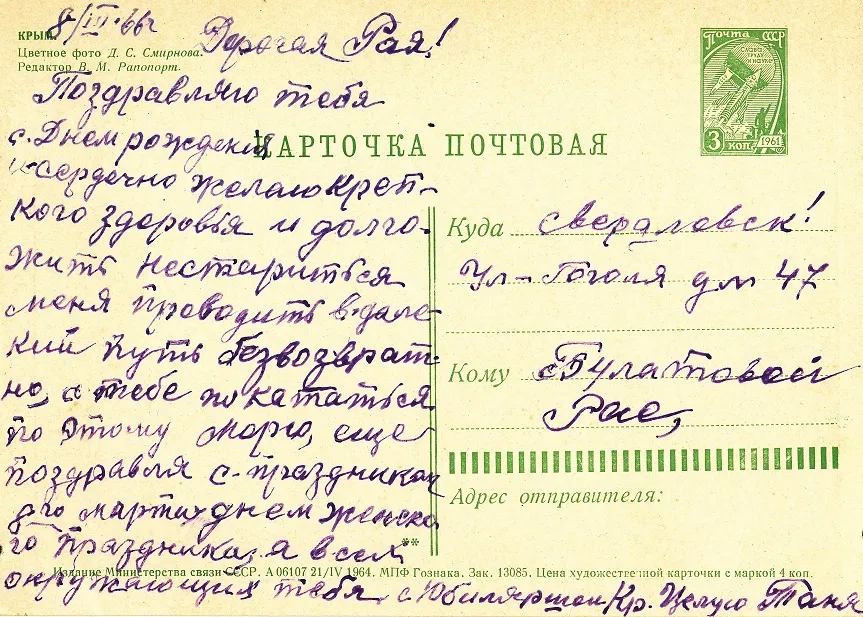 КРЫМ.
8/III-66г
Цветное фото Д. С. Смирнова.
Редактор В. М. Рапопорт.
Дорогая Рая!
Поздравляю тебя
с. Днем рождения
и сердечно желаю креп-
кого здоровья и долго-
жить нестариться
меня проводить в дале-
кий путь безвозврат-
но, а тебе покататься
по этому морю, еще
поздравля с-праздником
8го марта днем женско
го праздника, а всем
окружающих тебя, с Юбиляршой Кр. Целую Таня
ПОЧТА СССР
СЛАВА
ТРУДУ
И НАУКЕ
3 КОП.
1961
КАРТОЧКА ПОЧТОВАЯ
Куда свердловск!
Ул-Гоголя дм 47
Кому Булатовой
Рае,
Адрес отправителя:
**
Издание Министерства связи СССР. А 06107 21/IV 1964. МПФ Гознака. Зак. 13085. Цена художественной карточки с маркой 4 коп.